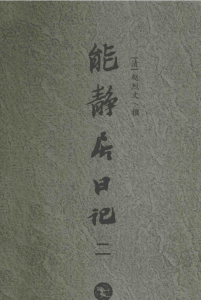 能静居日记 二
[清]赵烈文 撰